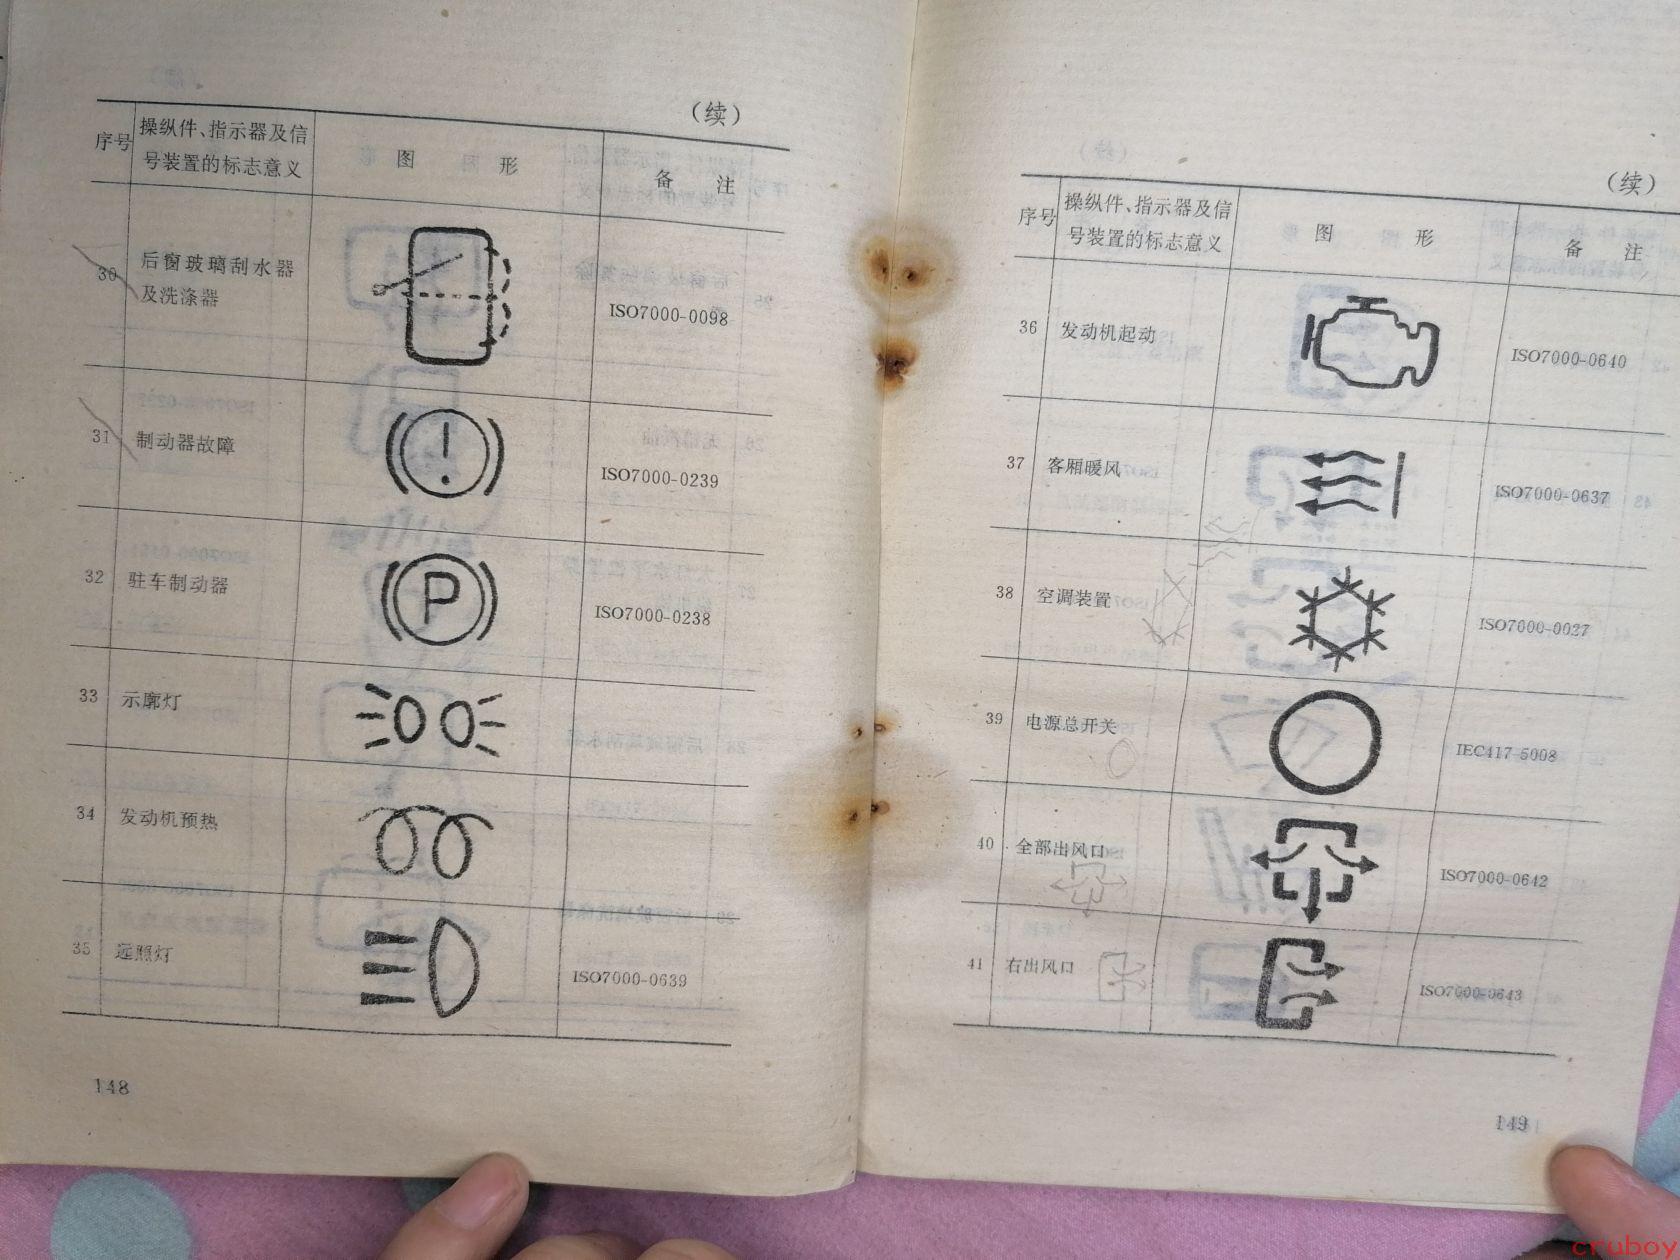 (续)
序号 操纵件、指示器及信号装置的标志意义 图 形 备 注
30 后窗玻璃刮水器及洗涤器 ISO7000-0098
31 制动器故障 ISO7000-0239
32 P 驻车制动器 ISO7000-0238
33 示廓灯
34 发动机预热
35 远照灯 ISO7000-0639
148
(续)
序号 操纵件、指示器及信号装置的标志意义 图 形 备 注
36 发动机起动 ISO7000-0640
37 客厢暖风 ISO7000-0637
38 空调装置 ISO7000-0027
39 电源总开关 IEC417-5008
40 全部出风口 ISO7000-0642
41 右出风口 ISO7000-0643
149
cruboy